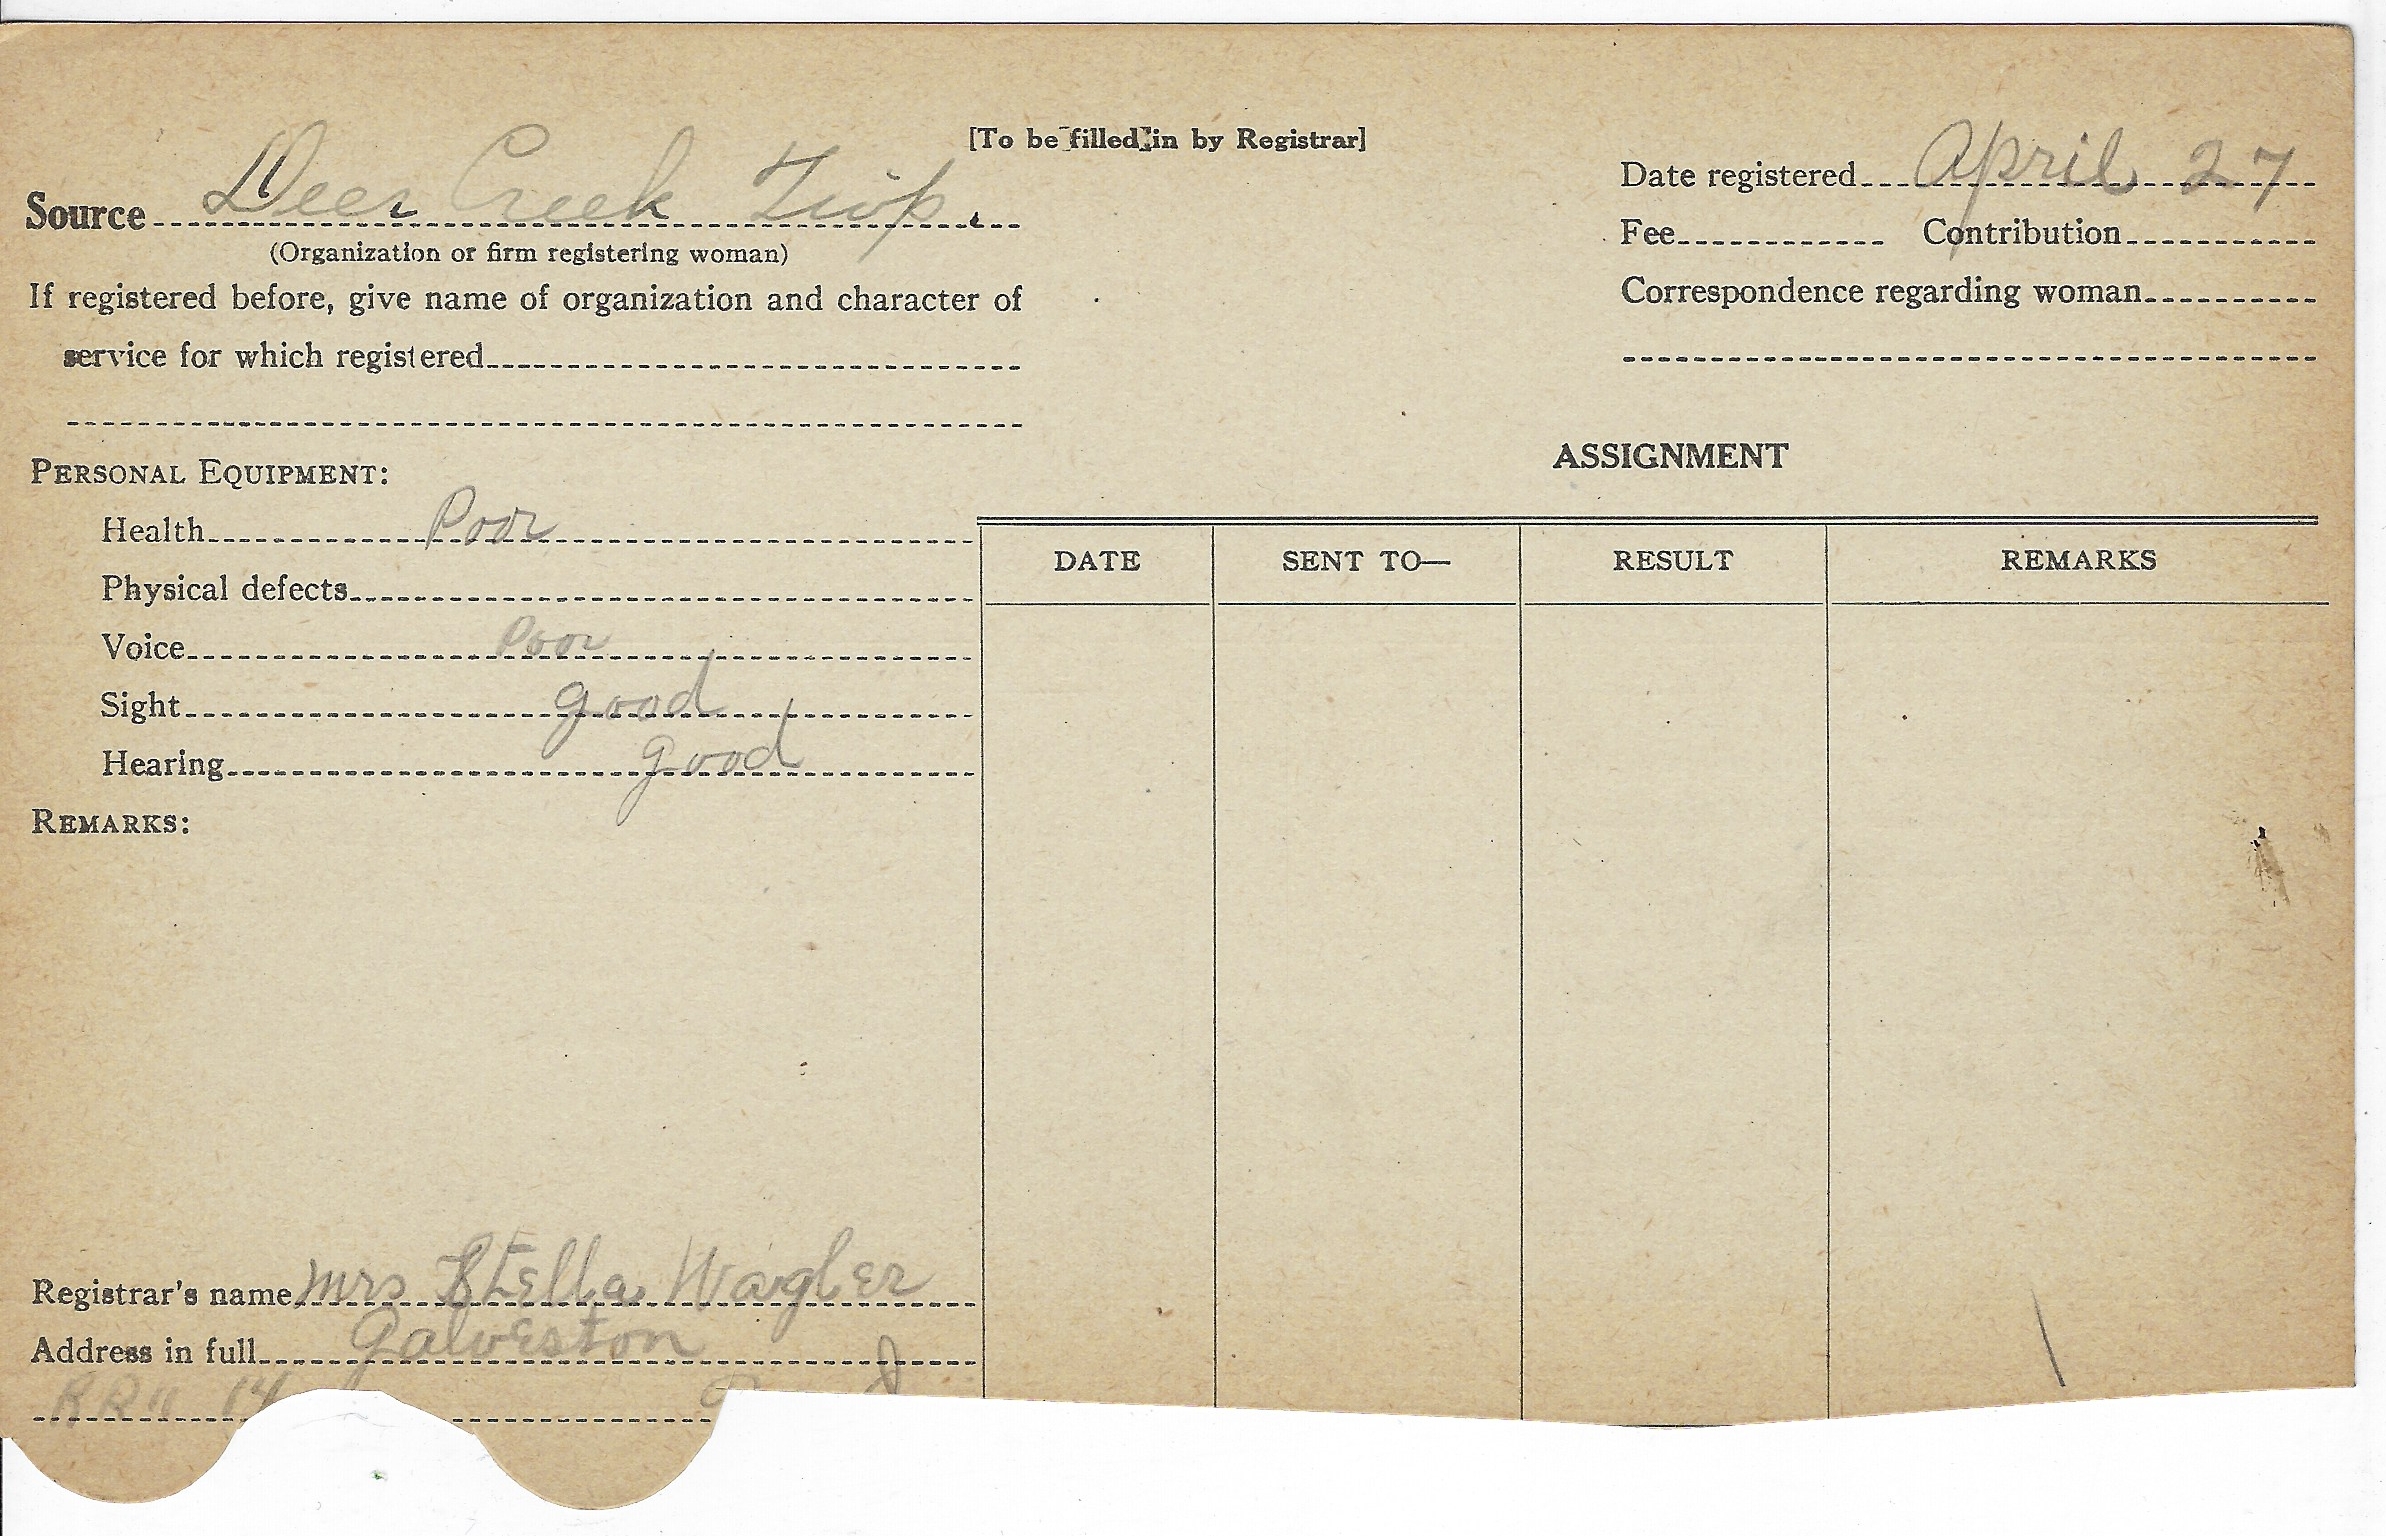 [To be filled in by Registrar]
Source Deer Creek Twp.
(Organization or firm registering woman)
If registered before, give name of organization and character of
service for which registered
Date registered April 27
Fee Contribution
Correspondence regarding woman
PERSONAL EQUIPMENT:
Health Poor
Physical defects
Voice Poor
Sight good
Hearing good
REMARKS:
Registrar's name Mrs Stella Wagler
Address in full Galveston
RR 14
ASSIGNMENT
DATE SENT TO— RESULT REMARKS